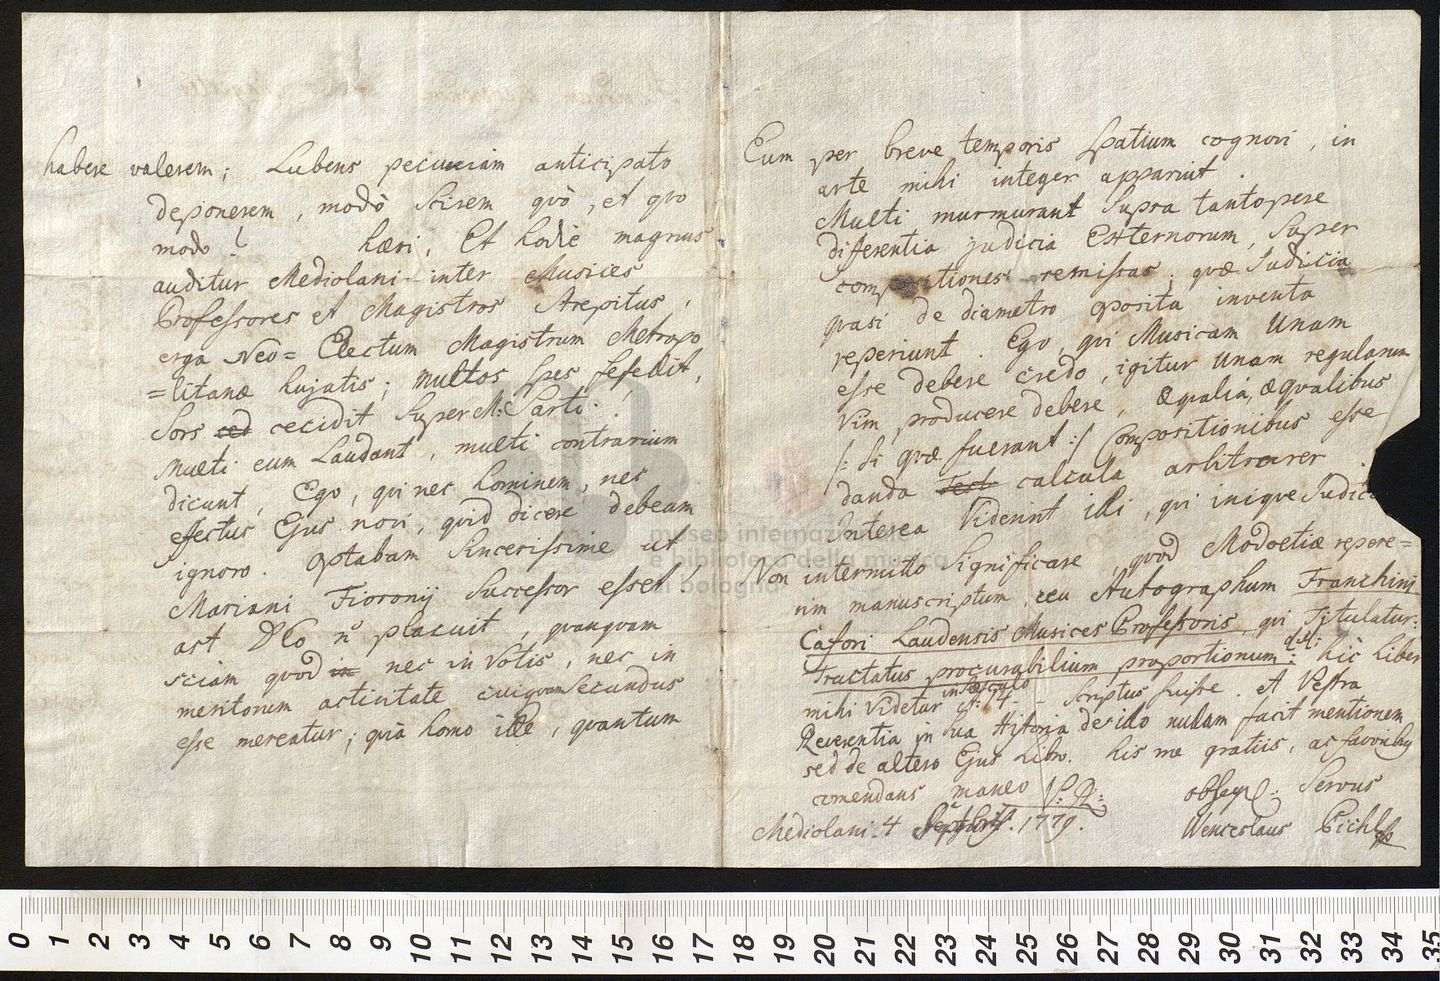 habere valerem; Lubens pecuniam anticipato
deponerem, modò Scirem quò, et quo
modo? hæri, Et hodiè magnus
auditur Mediolani inter Musices
Professores et Magistros Strepitus,
erga Neo= Electum Magistrum Metropo
=litanæ hujatis; multos spes fefellit,
Sors ced cecidit Super M: Sarti.
Multi eum Laudant, multi contrarium
dicunt, Ego, qui nec hominem, nec
effectus Ejus novi, quid dicere debeam
ignoro. Optabam Sincerissime ut
Mariani Fioronij Successor esset
ast DEo n͠ placuit, quanquam
sciam quod in nec in Votis, nec in
meritorum activitate cuiquam Secundus
esse mereatur; quià homo ille, quantum
Eum per breve temporis Spatium cognovi, in
arte mihi integer apparuit.
Multi murmurant Supra tantopere
diferentia judicia Externorum, Super
compositiones remissas; quæ Judicia
quasi de diametro oposita inventa
reperiunt. Ego, qui Musicam Unam
esse debere credo, igitur Unam regularum
Vim producere debere, æqualia, æqualibus
/: Si quæ fuerant :/ Compositionibus esse
danda calcula arbitrarer
Interea Viderint illi, qui inique Judica
Non intermitto Significare, quod Modoetiæ repere=
rim manuscriptum, ceu Autographum Franchini
Cafori Laudensis Musices Professoris, qui Titulatur:
Tractatus procurabilium proportionum: hic Liber
mihi Videtur in Sæculo 14 Scriptus fuisse. et Vestra
Reverentia in Sua Historia de illo nullam facit mentionem
sed de altero Ejus Libro. his me gratiis, ac favoribus
comendans maneo V: R: obseq: Servus
Mediolani. 4 Septbris. 1779. Wenceslaus Pichl